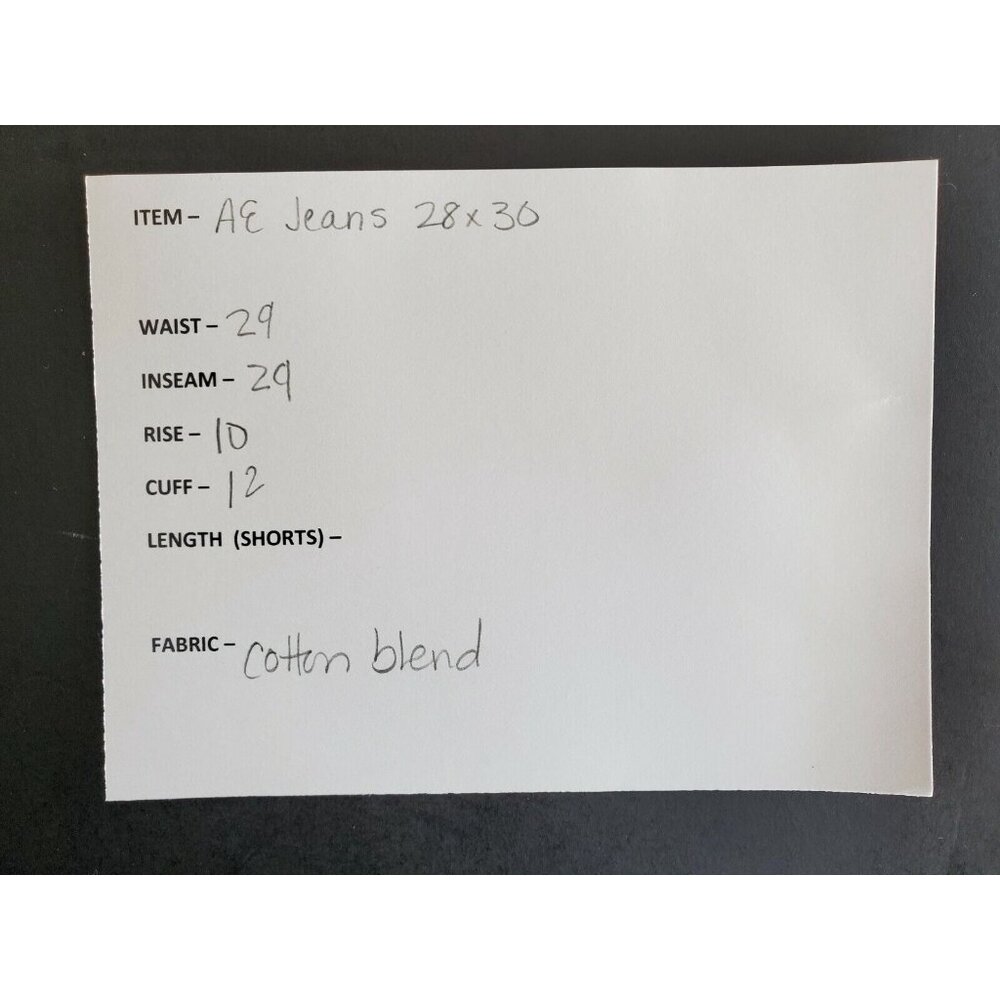 ITEM – AE Jeans 28x30
WAIST – 29
INSEAM – 29
RISE – 10
CUFF – 12
LENGTH (SHORTS) –
FABRIC – cotton blend